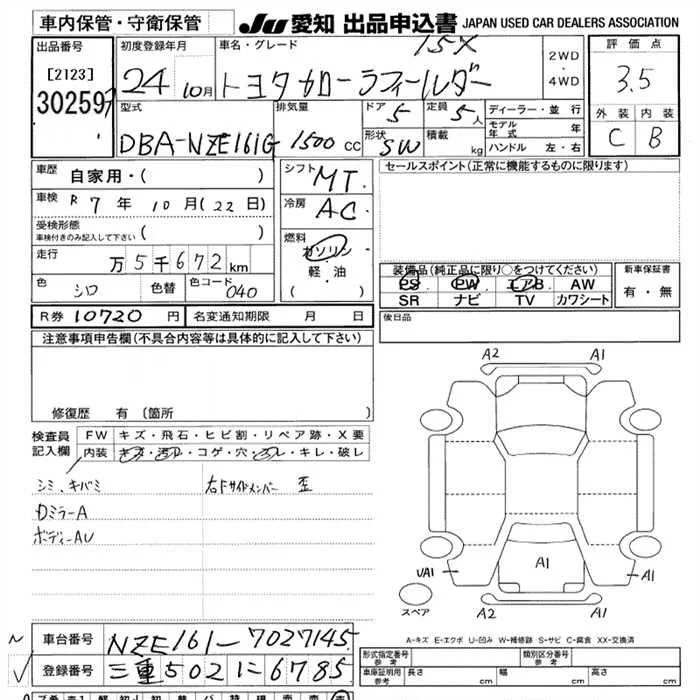 車内保管・守衛保管
JU 愛知 出品申込書 JAPAN USED CAR DEALERS ASSOCIATION
出品番号
[2123]
30259
初度登録年月
24 10月
車名・グレード
1.5X
トヨタ カローラフィールダー
2WD
・
4WD
評価点
3.5
外装 内装
C B
型式
DBA-NZE161G
排気量
1500 cc
ドア 5
形状 SW
定員 5人
積載 kg
ディーラー・並行
モデル年式 年
ハンドル 左・右
車歴 自家用・( )
車検 R7年10月(22日)
受検形態
車検付きのみ記入して下さい ( )
走行 万5千672km
色 シロ 色替 色コード 040
シフト MT.
冷房 AC.
燃料
ガソリン
・
軽・油
( )
セールスポイント(正常に機能するものに限ります)
装備品(純正品に限り○をつけてください)
PS PW エアB AW
SR ナビ TV カワシート
新車保証書
有・無
R券 10720 円 名変通知期限 月 日
後日品
注意事項申告欄(不具合内容等は具体的に記入して下さい)
修復歴 有(箇所
検査員記入欄
FW キズ・飛石・ヒビ割・リペア跡・X要
内装 キズ・汚レ・コゲ・穴・スレ・キレ・破レ
シミ、キバミ 右Fサイドメンバー 歪
Dミラーa
ボディーAU
A2 A1
A1
UA1 A1
A2 A1
スペア
A-キズ E-エクボ U-凹み W-補修跡 S-サビ C-腐食 XX-交換済
車台番号 NZE161-7027145
登録番号 三重502に6785
形式指定番号 参考
類別区分番号 参考
車庫証明用 参考 長さ 幅 高さ
cm cm cm